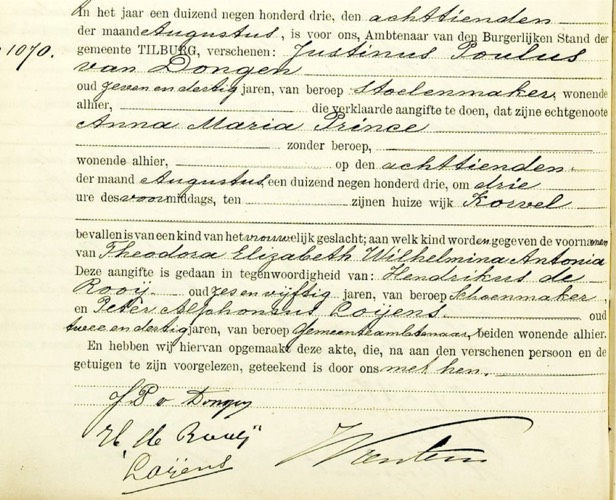 In het jaar een duizend negen honderd drie, den achttienden
der maand Augustus, is voor ons, Ambtenaar van den Burgerlijken Stand der
1070. gemeente TILBURG, verschenen: Justinus Poulus
van Dongen
oud zeven en dertig jaren, van beroep Stoelenmaker, wonende
alhier, die verklaarde aangifte te doen, dat zijne echtgenoote
Anna Maria Prince
zonder beroep,
wonende alhier, op den achttienden
der maand Augustus, een duizend negen honderd drie, om drie
ure des voormiddags, ten zijnen huize wijk Korvel
bevallen is van een kind van het vrouwelijk geslacht; aan welk kind worden gegeven de voornamen
van Theodora Elizabeth Wilhelmina Antonia
Deze aangifte is gedaan in tegenwoordigheid van: Hendrikus de
Rooij oud zes en vijftig jaren, van beroep Schoenmaker
en Peter Alphonsus Loijens oud
twee en dertig jaren, van beroep Gemeenteambtenaar, beiden wonende alhier.
En hebben wij hiervan opgemaakt deze akte, die, na aan den verschenen persoon en de
getuigen te zijn voorgelezen, geteekend is door ons met hen.
J P v Dongen
H de Rooij
Loijens